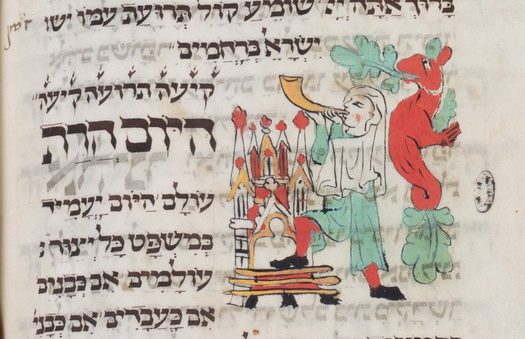 ברוך אתה יי שומע קול תרועת עמו ישר
ישראל ברחמים
קיעה תרועה קיעה
היום הרת
עולם היום יעמיד
במשפט כל יצורי
עולמים אם כבנים
אם כעבדים אם כבני